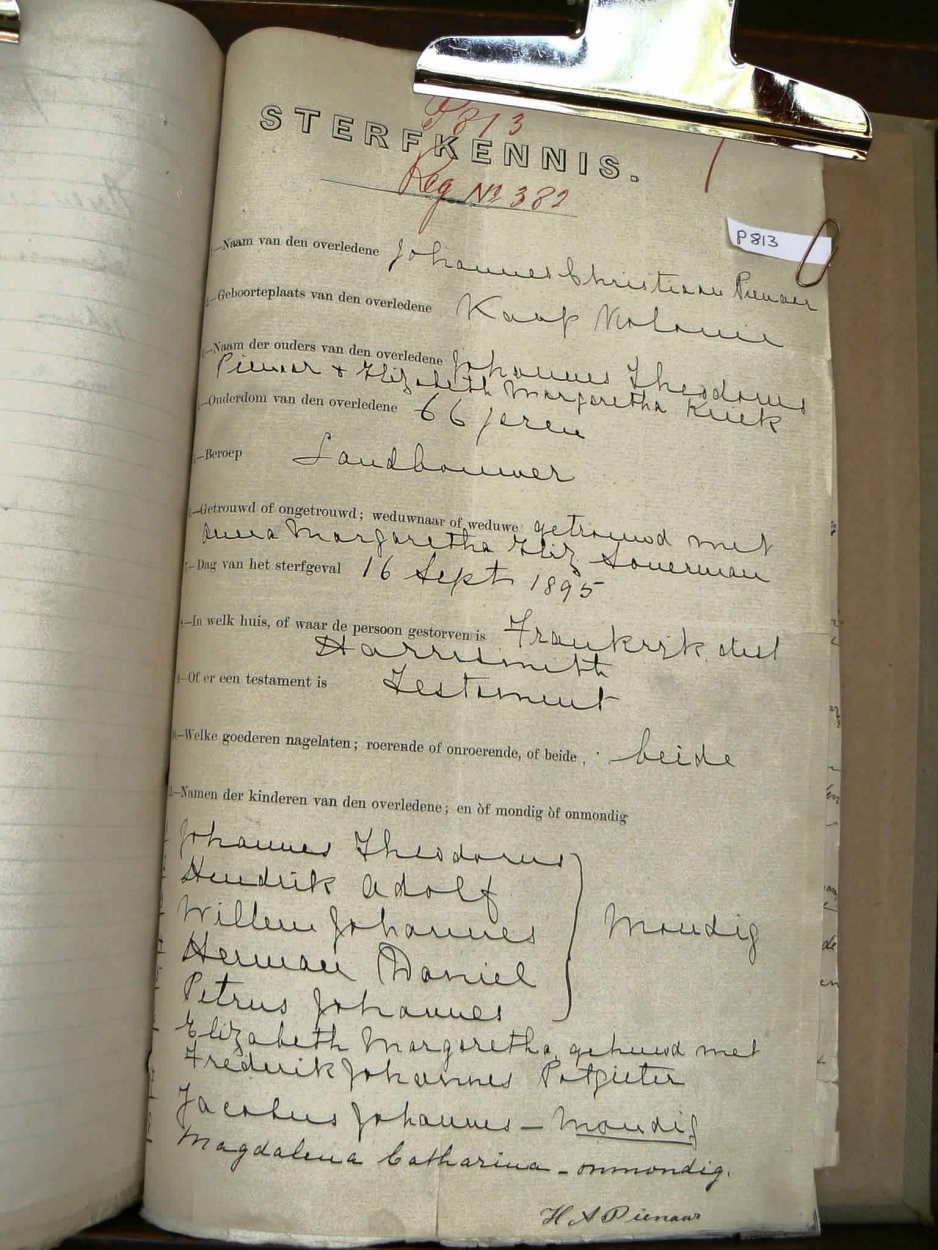 P813
STERFKENNIS.
Reg No 382
P813
1.—Naam van den overledene Johannes Christiaan Pienaar
2.—Geboorteplaats van den overledene Kaap Kolonie
3.—Naam der ouders van den overledene Johannes Theodorus
Pienaar & Elizabeth Margaretha
4.—Ouderdom van den overledene 66 jaren
5.—Beroep Landbouwer
6.—Getrouwd of ongetrouwd; weduwnaar of weduwe getrouwd met
Anna Margaretha Eliz
7.—Dag van het sterfgeval 16 Sept 1895
8.—In welk huis, of waar de persoon gestorven is Frankrijk dist
Harrismith
9.—Of er een testament is Testament
10.—Welke goederen nagelaten; roerende of onroerende, of beide, beide
11.—Namen der kinderen van den overledene; en òf mondig òf onmondig
Johannes Theodorus
Hendrik Adolf
Willem Johannes
Mondig
Herman Daniel
Petrus Johannes
Elizabeth Margaretha, gehuwd met
Frederik Johannes Potgieter
Jacobus Johannes – mondig
Magdalena Catharina – onmondig.
H A Pienaar